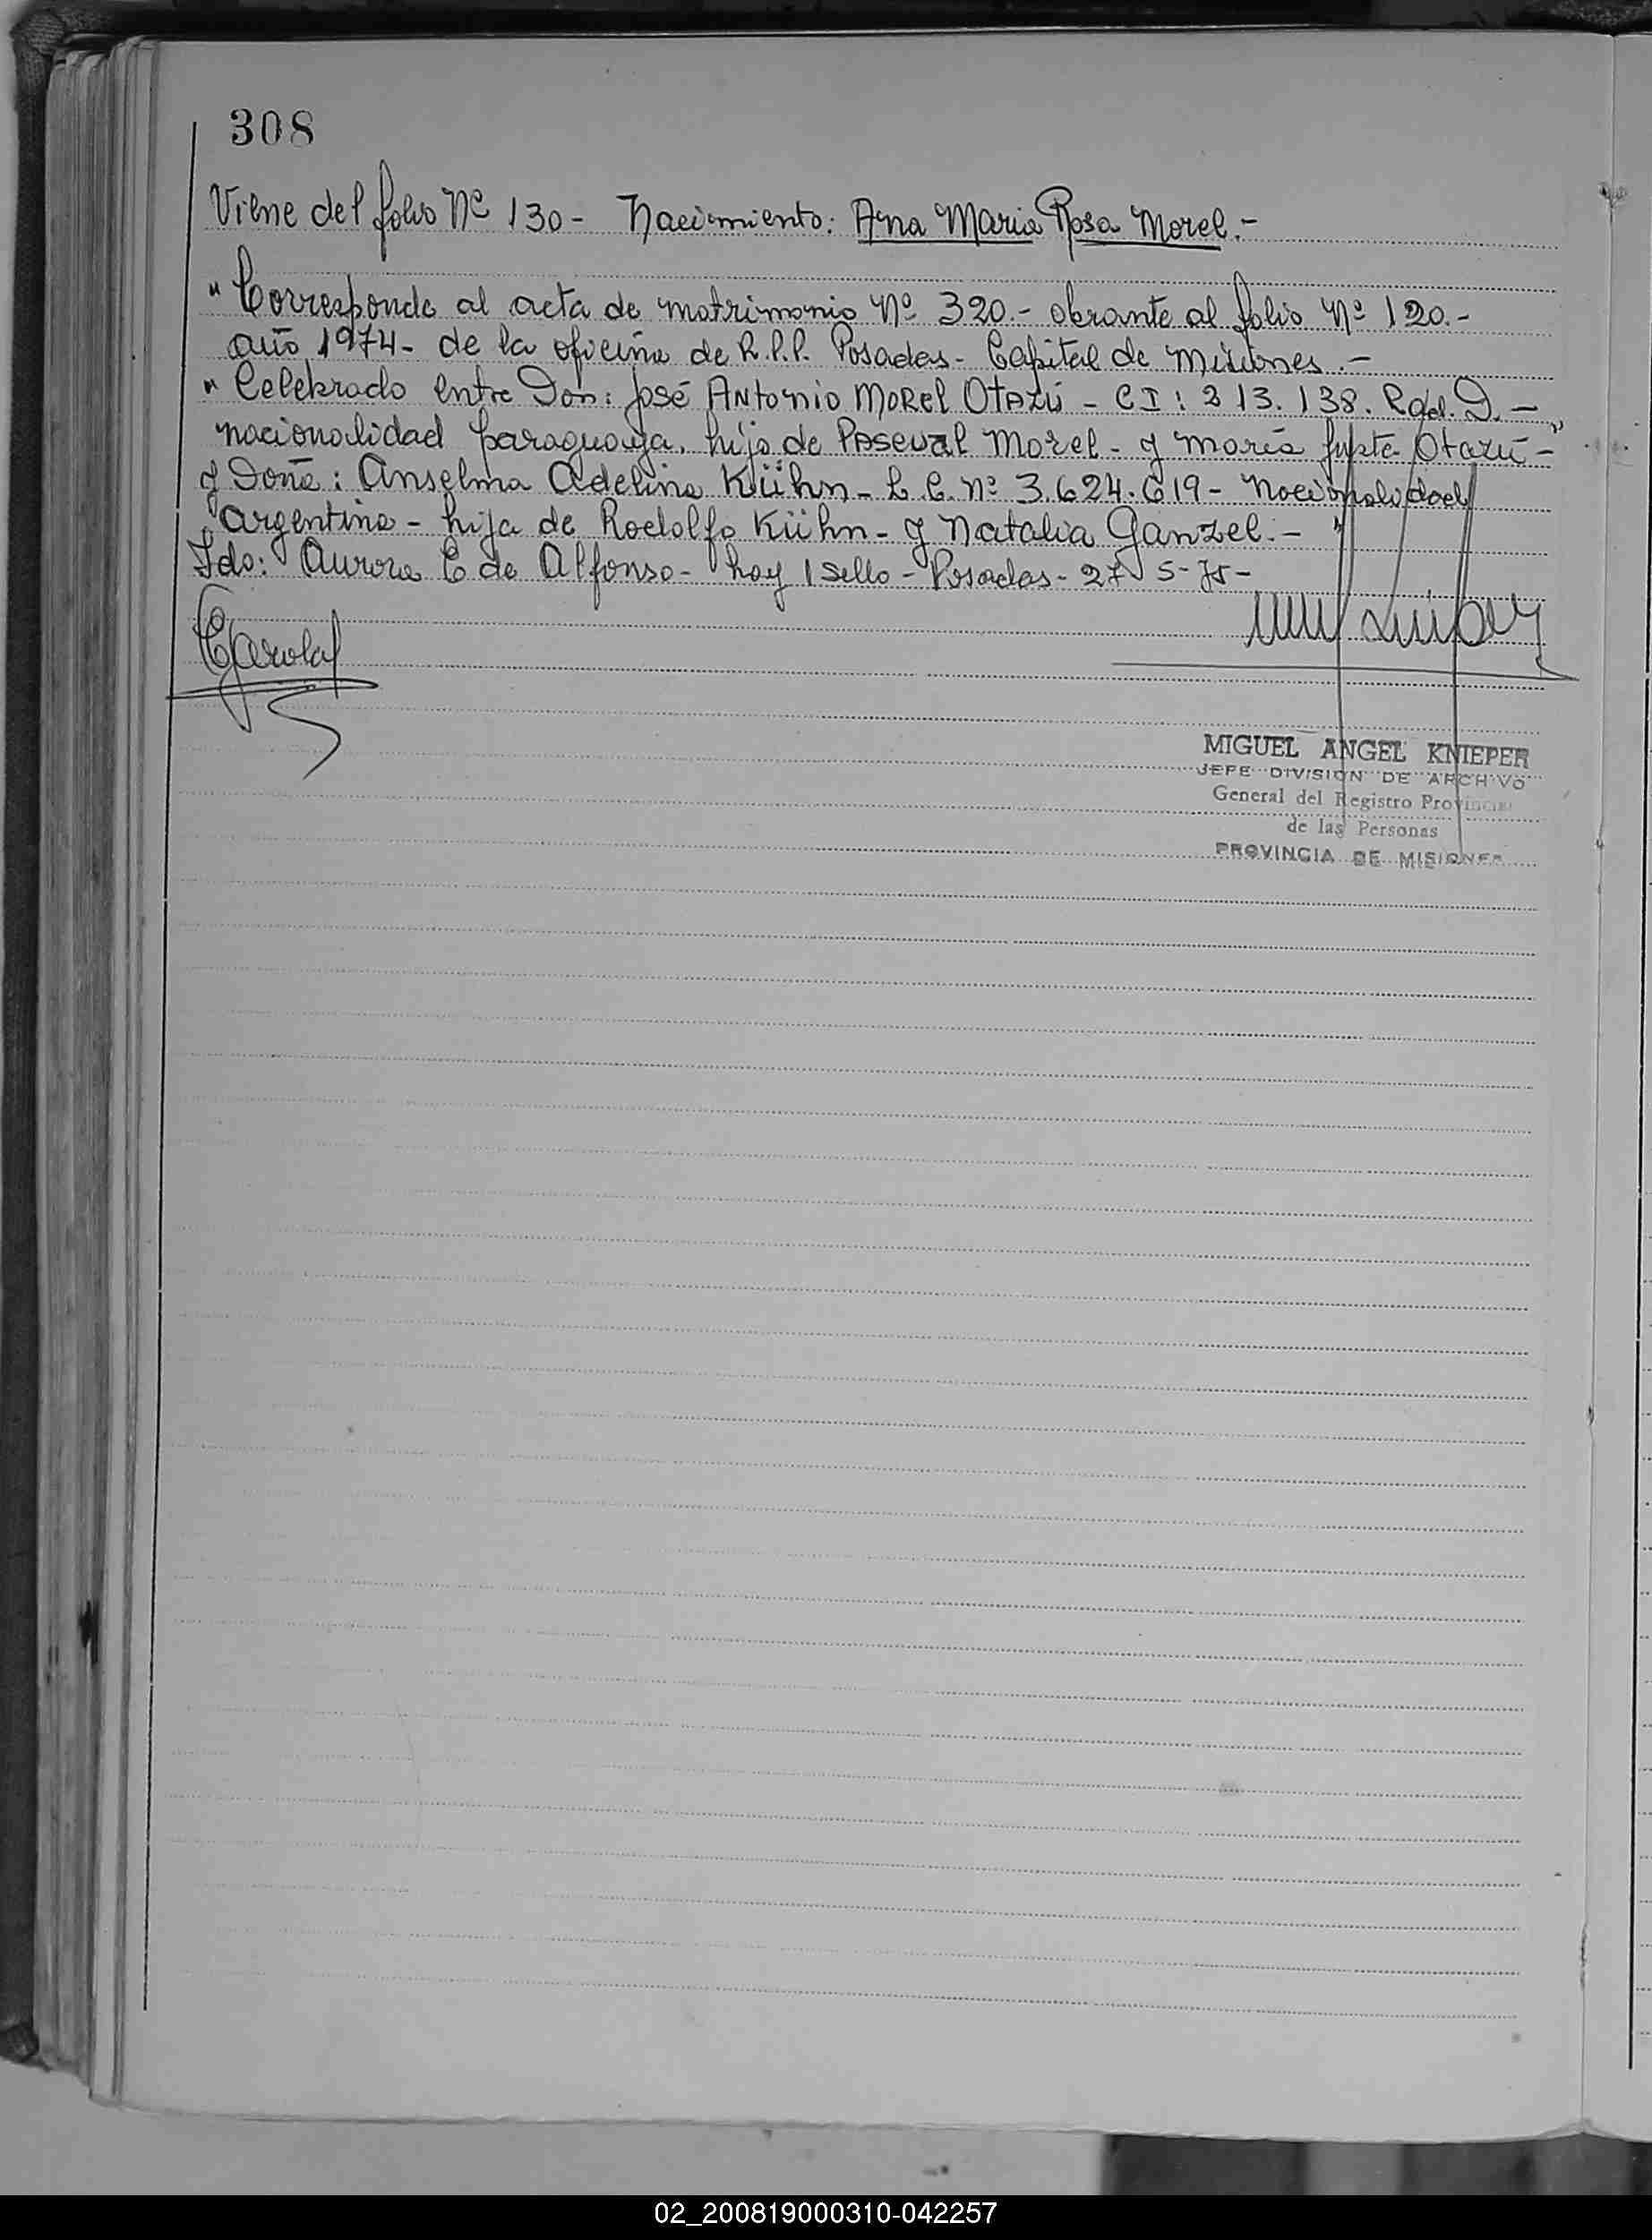 308
Viene del folio Nº 130 - Nacimiento: Ana Maria Rosa Morel.-
"Corresponde al acta de matrimonio Nº 320.- obrante al folio Nº 120.-
año 1974- de la oficina de R.P.P. Posadas- Capital de Misiones.-
" Celebrado entre Don: José Antonio Morel Otazú - CI: 313.138. D.-
nacionalidad paraguaya, hijo de Pascual Morel- y maría Justa Otazú-"
y Doña: Anselma Adelina Kühn- L.C. Nº 3.624.619- nacionalidad
"argentina- hija de Rodolfo Kühn- y Natalia Ganzel.- "
Fdo: Aurora C de Alfonso- hay 1 sello- Posadas- 27-5-75-
MIGUEL ANGEL KNIEPER
JEFE DIVISION DE ARCHIVO
General del Registro Provincial
de las Personas
PROVINCIA DE MISIONES
02_200819000310-042257